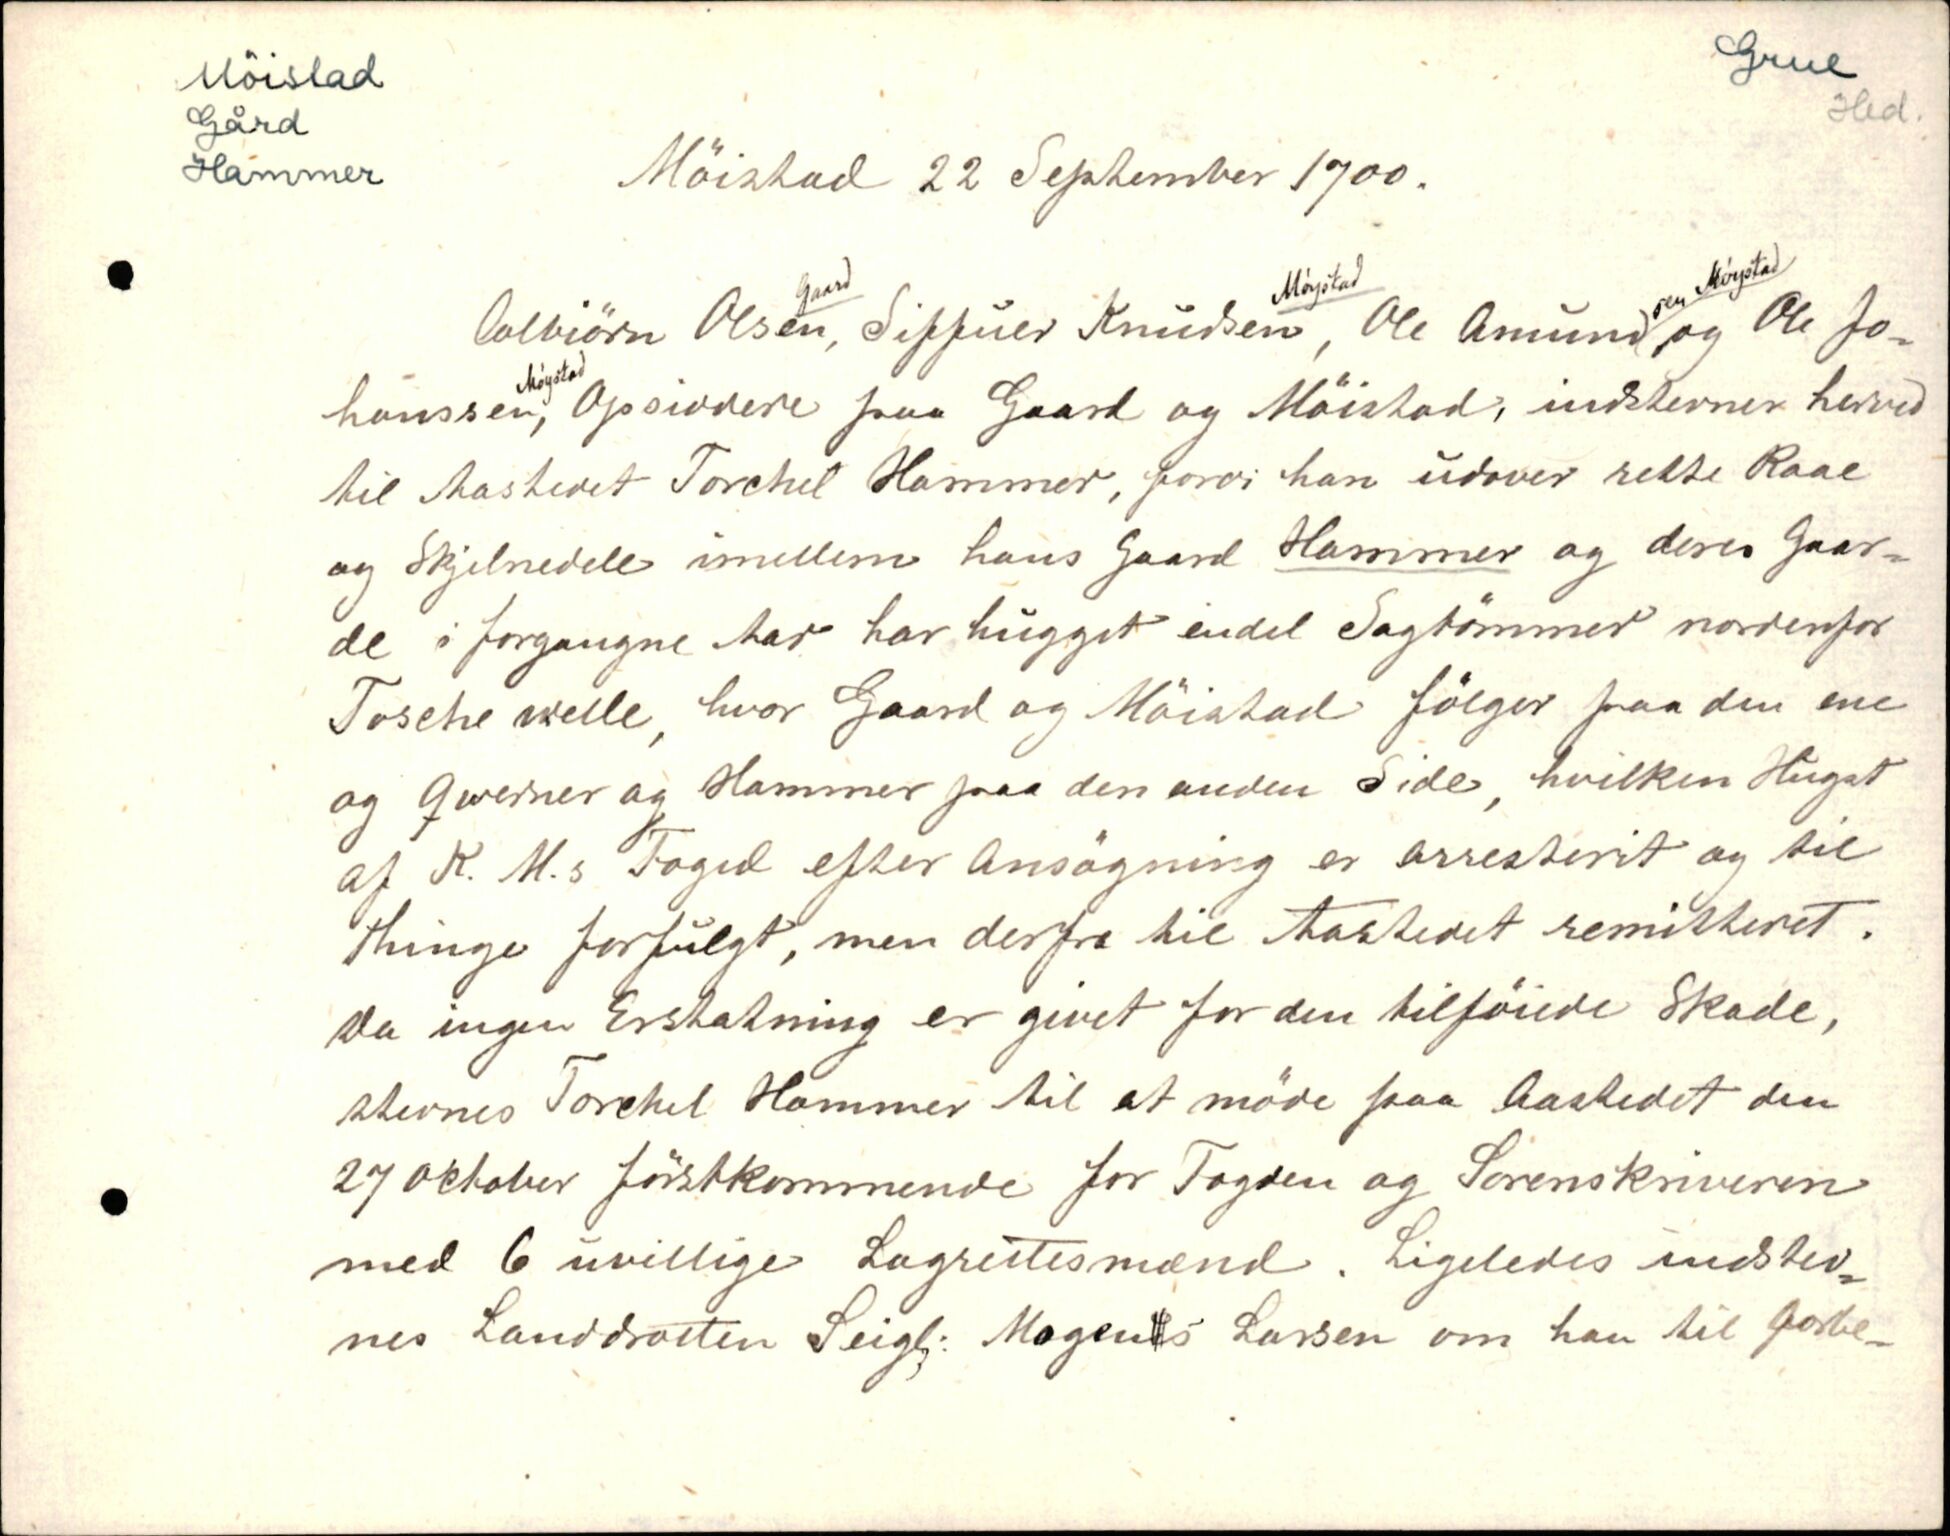 Möistad
Gård
Hammer
Grue
Hed.
Möistad 22 September 1700.
Colbiörn Olsen, Gaard Siffuer Knudsen, Möystad Ole Amundsen Möystad og Ole Jo-
hanssen, Möystad Opsiddere paa Gaard og Möistad, indstevner herved
til Aastedet Torchel Hammer, fordi han udover rette Raae
og Skjelnedele imellem hans Gaard Hammer og deres Gaar-
de i forgangne Aar har hugget endel Sagtömmer nordenfor
Tosche welle, hvor Gaard og Möistad fölger paa den ene
og Qwerner og Hammer paa den anden Side, hvilken Hugst
af K. M.s Foged efter Ansögning er arresterit og til
Thinge forfulgt, men derfra til Aastedet remitteret.
Da ingen Erstatning er givet for den tilföiede Skade,
stevnes Torchel Hammer til at möde paa Aastedet den
27 October förstkommende for Fogden og Sorenskriveren
med 6 uvillige Lagrettesmænd. Ligeledes indstev-
nes Landdrotten Seigl: Mogens Larsen om han til Gaarde-